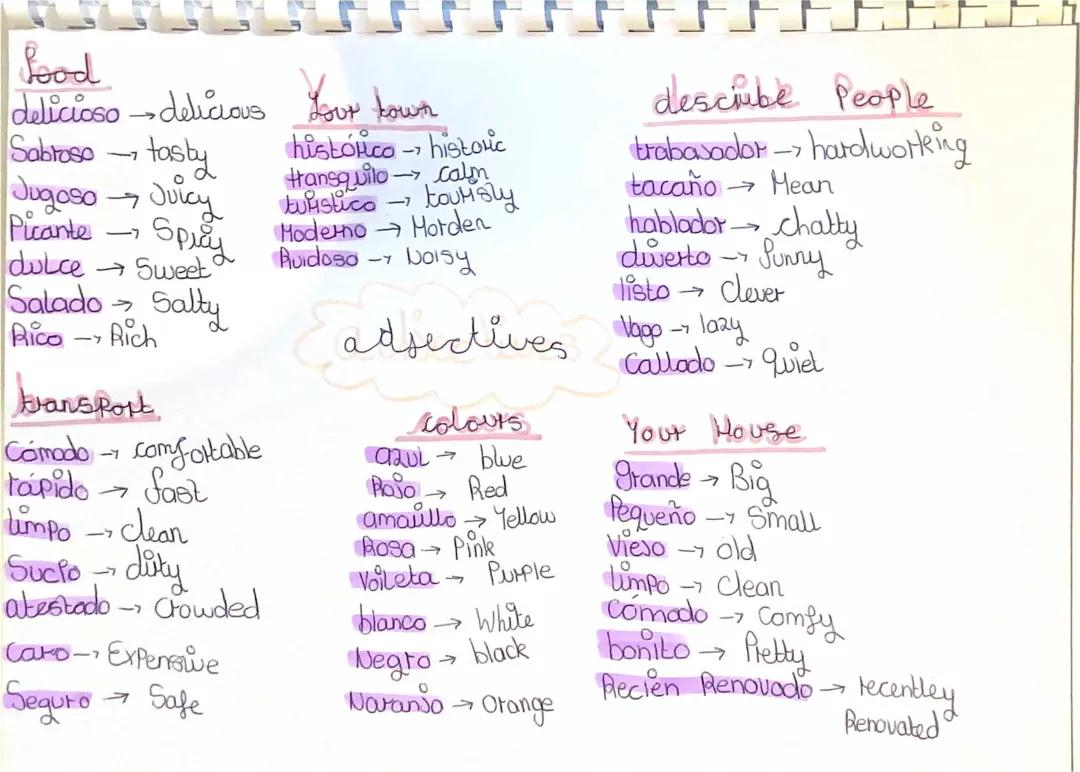 Food
delicioso → delicious
Sabroso → tasty
Jugoso → Juicy
Picante → Spicy
dulce → Sweet
Salado → Salty
Rico → Rich
Your town
histórico → historic
transquilo → calm
turistico → touristy
Moderno → Morden
Ruidoso → Noisy
describe People
trabasador → hardworking
tacaño → Mean
hablador → chatty
diverto → funny
listo → Clever
Vago → lazy
Callado → Quiet
adjectives
transport
Cómodo → comfortable
rápido → fast
limpo → Clean
Sucio → dirty
atestado → Crowded
Caro → Expensive
Seguro → Safe
colours
azul → blue
Rojo → Red
amarillo → Yellow
Rosa → Pink
Voileta → Purple
blanco → White
Negro → black
Naranjo → Orange
Your House
grande → Big
Pequeño → Small
Viejo → old
limpo → Clean
Cómodo → Comfy
bonito → Pretty
Recién Renovado → recentley
Renovated